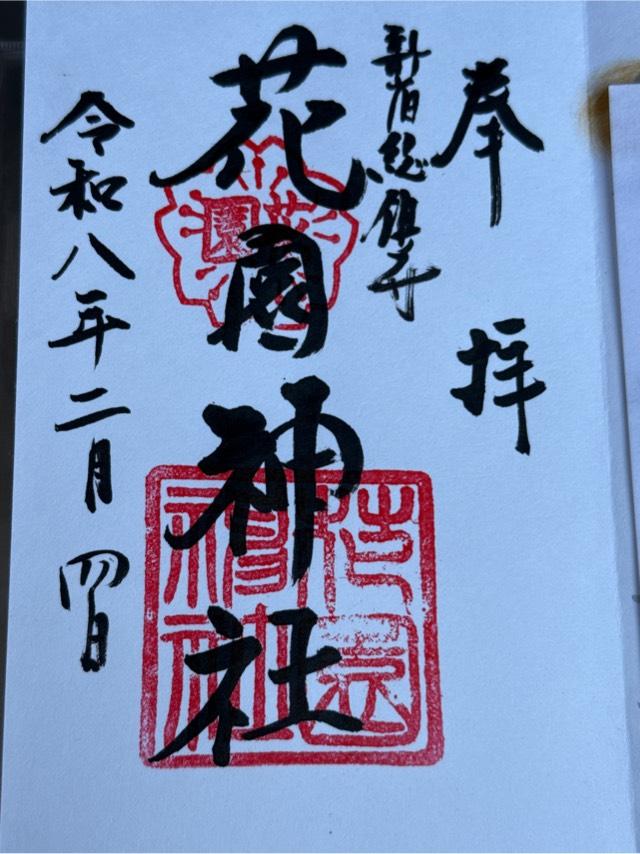 奉拝
新宿総鎮守
花園神社
花園
花園神社
令和八年二月四日